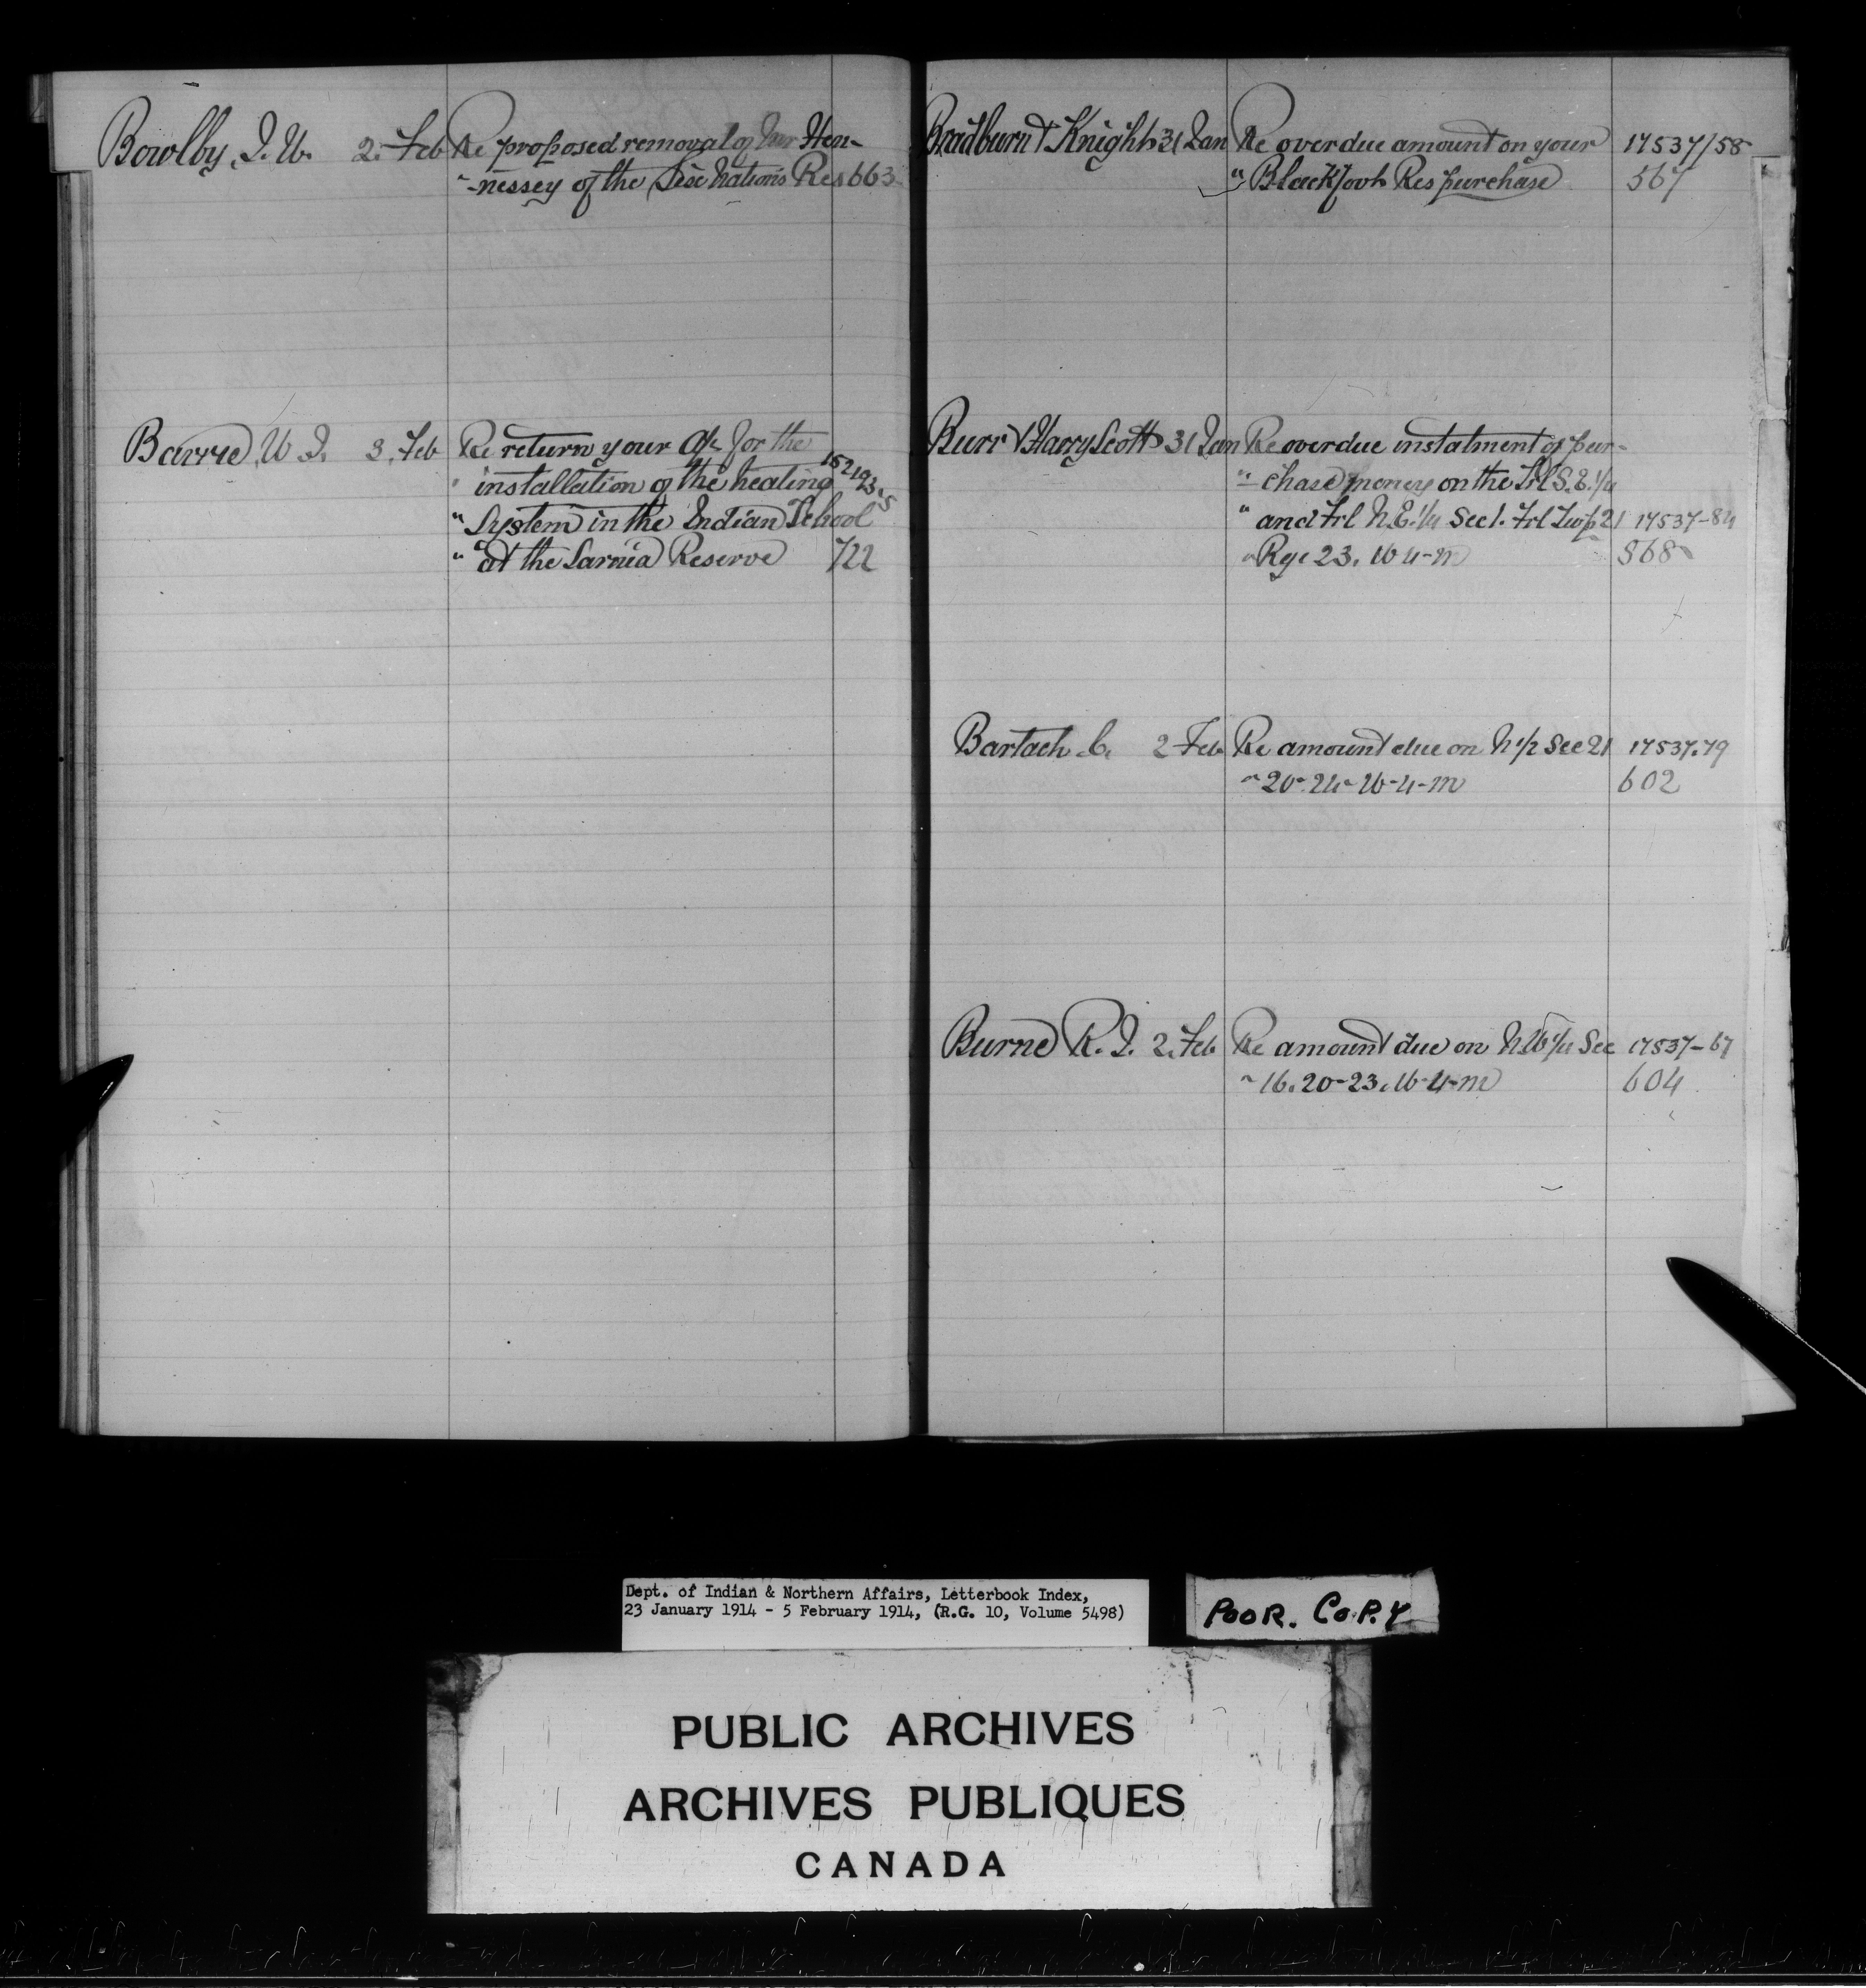 Bowlby, J. W. 2. Feb Re proposed removal of Mr Hen-
" -nessey of the Six Nations Res 663
Barrie, W J. 3. Feb Re return your a/c for the
" installation of the heating 152193-5
" System in the Indian School
" at the Sarnia Reserve 722
Bradburn & Knight 31 Jan Re overdue amount on your 17537/58
" Blackfoot Res purchase 567
Burr & Harry Scott 31 Jan Re overdue instalment of pur-
" - chase money on the Frl S.E. 1/4
" and Frl N.E. 1/4 Sec 1. Frl Twp 21 17537-84
" Rge 23. W-4-M 568
Bartach C. 2 Feb Re amount due on N 1/2 Sec 21 17537.79
" 20-24-W-4-M 602
Burne R. J. 2. Feb Re amount due on N.W 1/4 Sec 17537-67
" 16. 20-23. W-4-M 604
Dept. of Indian & Northern Affairs, Letterbook Index,
23 January 1914 - 5 February 1914, (R.G. 10, Volume 5498)
POOR. COPY
PUBLIC ARCHIVES
ARCHIVES PUBLIQUES
CANADA